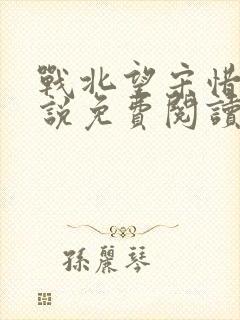 戰北望宋惜
說免費閱讀
孫麗琴